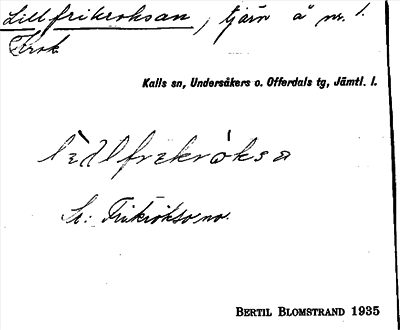 Lillfrikroksan, tjärn å nr. 1.
Krok
Kalls sn, Undersåkers o. Offerdals tg, Jämtl. l.
lìdlfrekróksa
St:
BERTIL BLOMSTRAND 1935